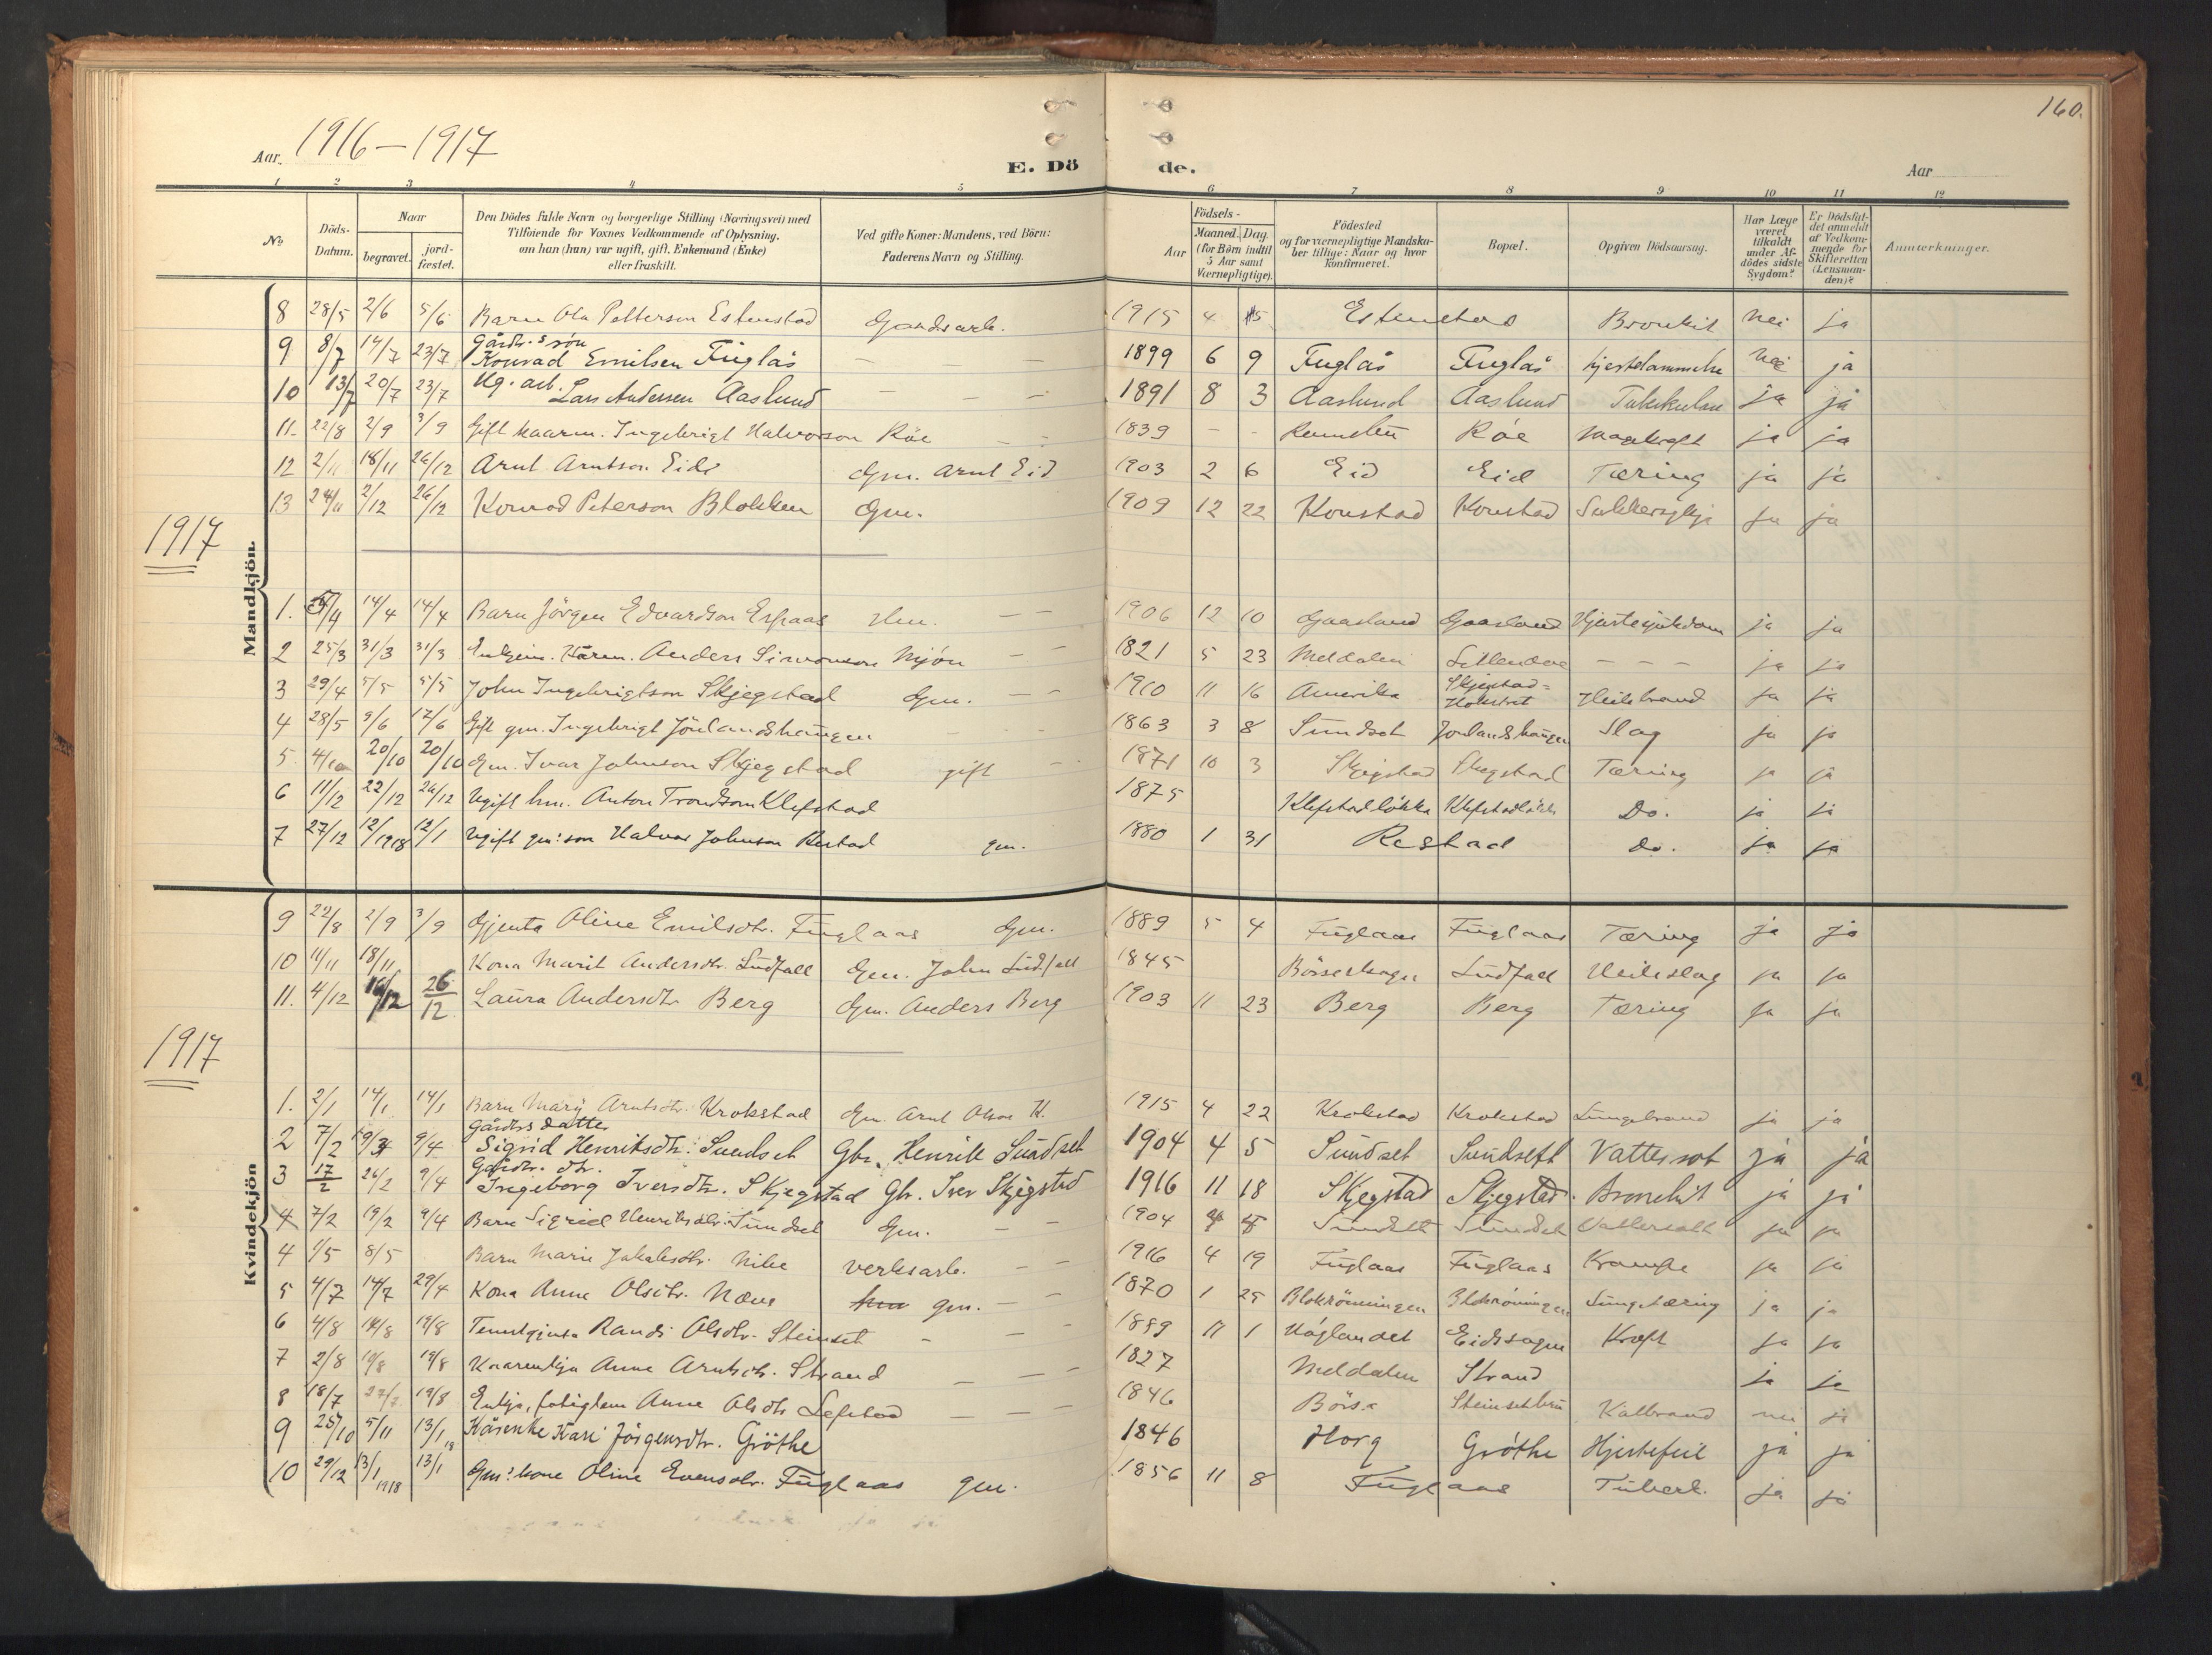 160.
Aar. 1916 – 1917
E. Dö de.
Aar
1 2 3 4 5 6 7 8 9 10 11 12
No
Döds-Datum.
Naar begravet. jordfæstet.
Den Dödes fulde Navn og borgerlige Stilling (Næringsvei) med Tilföiende for Voxnes Vedkommende af Oplysning, om han (hun) var ugift, gift, Enkemand (Enke) eller fraskilt.
Ved gifte Koner: Mandens, ved Börn: Faderens Navn og Stilling.
Födsels- Aar Maaned. Dag. (for Börn indtil 5 Aar samt Værnepligtige).
Födested og for værnepligtige Mandskaber tillige: Naar og hvor konfirmeret.
Bopæl.
Opgiven Dödsaarsag.
Har Læge været tilkaldt under Afdödes sidste Sygdom?
Er Dödsfaldet anmeldt af Vedkommende for Skifteretten (Lensmanden)?
Anmærkninger.
Mandkjön.
8 28/5 2/6 5/6 Barn Ola Petterson Estenstad Gaardsarb. 1915 4 15 Estenstad Bronkit Nei ja
9 8/7 14/7 23/7 Gårdbr.s søn Konrad Emilsen Fuglås — — 1899 6 9 Fuglås Fuglås hjertelammelse Nei ja
10 13/7 20/7 23/7 Ug. arb. Lars Andersen Aaslund — — — 1891 8 3 Aaslund Aaslund Tuberkulose ja ja
11. 22/8 2/9 3/9 Gift kaarm. Ingebrigt Halvorson Röe — — 1839 – – Röe Mavekræft ja ja
12 2/11 18/11 26/12 Arnt Arntson Eide Gm. Arnt Eid 1903 2 6 Eid Eid Tæring ja ja
13 24/11 2/12 26/12 Konrad Peterson Blokken Gm. 1909 12 22 Konstad Konstad Sukkersyke ja ja
1917
1. 5/4 14/4 14/4 Barn Jörgen Edvardson Espaas Hm. — 1906 12 10 Gaasland Gaasland Hjertesykdom ja ja
2 25/3 31/3 31/3 Enkem. Kårm. Anders Simonson Mjön — — 1821 5 23 Meldalen — — — ja ja
3 29/4 5/5 5/5 John Ingebrigtson Skjegstad Gm. — — 1910 11 16 Amerika Skjegstad= Heilsbrand ja ja
4 28/5 9/6 17/6 Gift gm. Ingebrigt Jörlandshaugen — — 1863 3 8 Sundset Jorlandshaugen Slag ja ja
5. 4/10 20/10 20/10 Gm. Ivar Johnson Skjegstad gift — 1871 10 3 Skjegstad Skegstad Tæring ja ja
6 11/12 22/12 26/12 Ugift hm. Anton Trondson Klefstad 1875 Klefstadløkka Klefstadløkk. Do. ja ja
7 27/12 12/1 1918 12/1 Ugift gm:son Halvor Johnson Restad gm. 1880 1 31 Restad Do. ja ja
Kvindekjön
9 22/8 2/9 3/9 Gjenta Oline Emilsdtr. Fuglaas Gm. 1889 5 4 Fuglaas Fuglaas Tæring ja ja
10 11/11 18/11 Kona Marit Andersdtr. Sudfall Gm. John Sudfall 1845 Börseskogn Sudfall Heileslag ja ja
11. 4/12 16/12 26/12 Laura Andersdtr Berg Gm. Anders Berg 1903 11 23 Berg Berg Tæring ja ja
1917
1. 2/1 14/1 14/1 Barn Mary Arntsdtr. Krokstad Gm. Arnt Olsen K. 1915 4 22 Krokstad Krokstad Lungebrand ja ja
2 7/2 19/3 9/4 Gårdbrs datter Sigrid Henriksdtr: Sundset Gbr. Henrik Sundset 1904 4 5 Sundset Sundsett Vattersot ja ja
3 17/2 26/2 9/4 Gårdbr. dtr. Ingeborg Iversdtr. Skjegstad Gbr. Iver Skjegstad 1916 11 18 Skjegstad Skjegstad. Bronchit ja ja
4 7/2 19/2 9/4 Barn Sigrid Henriksdtr. Sundset Gm. — — 1904 4 5 Sundset Sundset Vattersott ja ja
4 1/5 8/5 Barn Marie Jakobsdtr. verksarb. — — 1916 4 19 Fuglaas Fuglaas Krampe ja ja
5 4/7 14/7 29/4 Kona Anne Olsdtr. gm. — — 1870 1 25 Blokrönningen Blokrönningen Lungetæring ja ja
6 4/8 14/8 19/8 Randi Olsdtr. Steinset – — — 1899 11 1 Höglandet Kræft ja ja
7 2/8 19/8 Anne Arntsdtr. Strand — — 1827 Meldalen Strand ja ja
8 18/7 27/7 19/8 Enkje, fatiglem Anne Olsdtr Lefstad — — — 1846 Börsa Kalbrand nei ja
9 25/10 5/11 13/1 18 Kårenke Kari Jörgensdtr. Gröthe 1846 Horg Gröthe Hjertefeil ja ja
10 29/12 13/1 1918 13/1 Gm:kone Oline Evensdtr. Fuglaas gm. 1856 11 8 Fuglaas Tuberk. ja ja